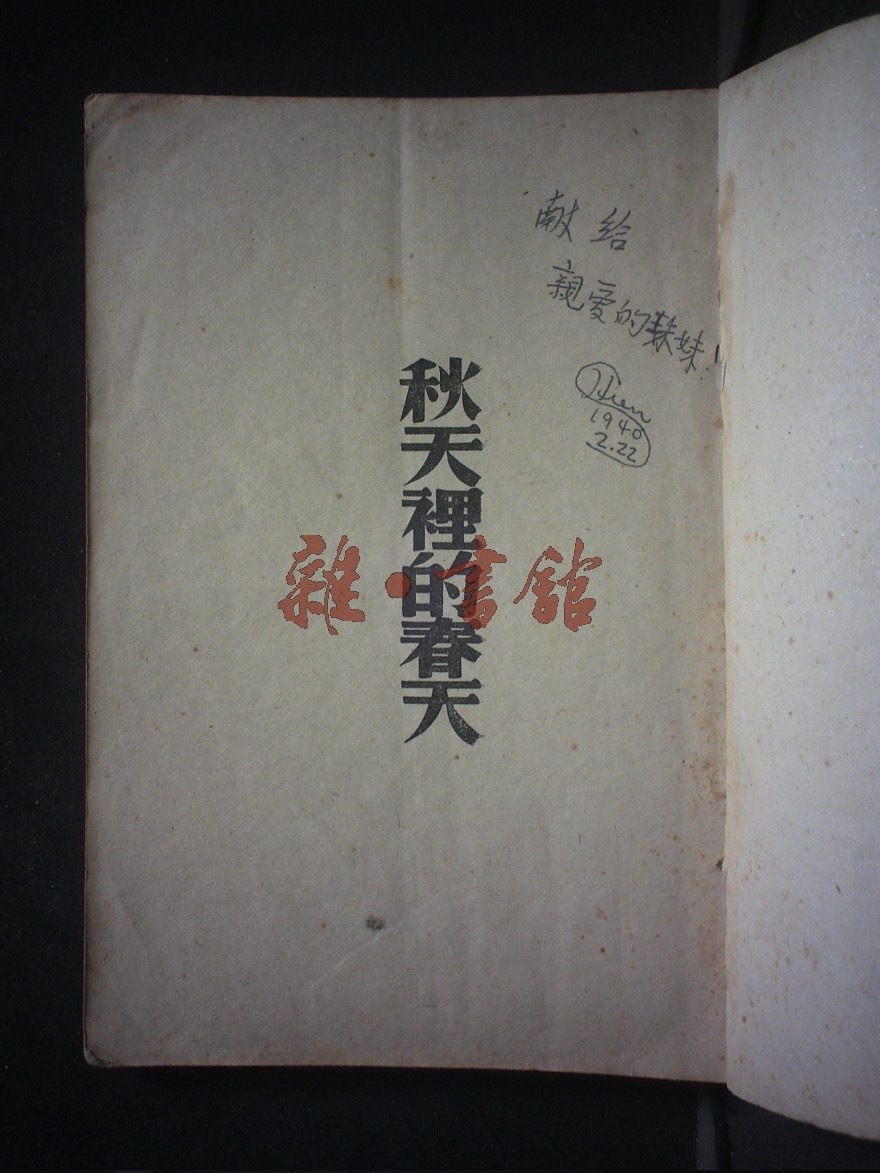 献 給
親爱的妹!
1940
2.22
秋天裡的春天
雜·書館